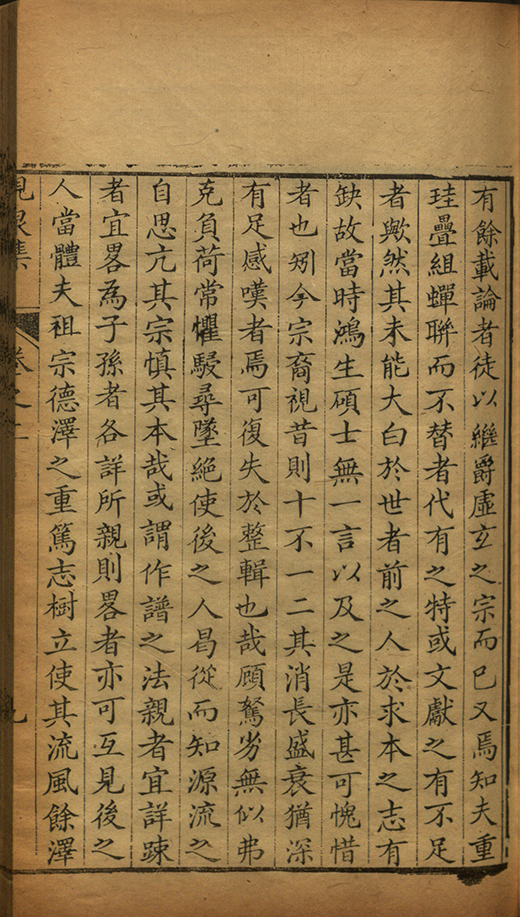 有餘載論者徒以繼爵虛玄之宗而已又焉知夫重
珪疊組蟬聯而不替者代有之特或文獻之有不足
者歟然其未能大白於世者前之人於求本之志有
缺故當時鴻生碩士無一言以及之是亦甚可愧惜
者也矧今宗裔視昔則十不一二其消長盛衰猶深
有足感嘆者焉可復失於整輯也哉顧駑劣無似弗
克負荷常懼駸尋墜絕使後之人曷從而知源流之
自思亢其宗慎其本哉或謂作譜之法親者宜詳踈
者宜畧為子孫者各詳所親則畧者亦可互見後之
人當體夫祖宗德澤之重篤志樹立使其流風餘澤
見泉集 卷之二 九